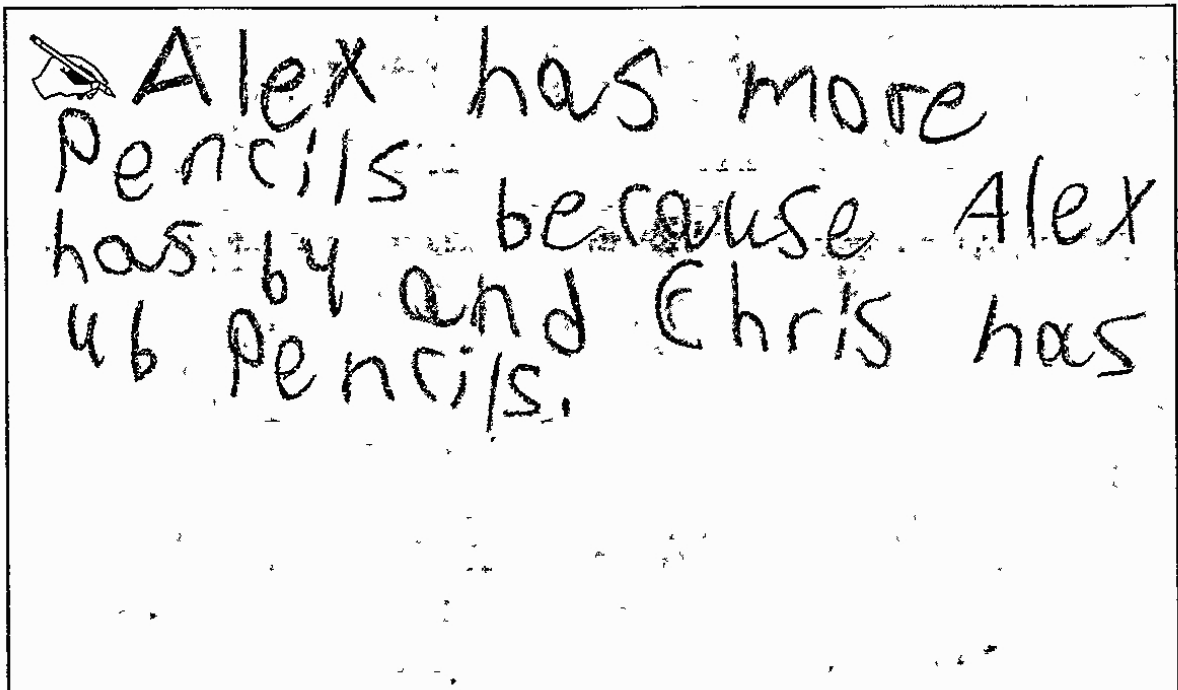 Alex has more
Pencils because Alex
has 64 and Chris has
46 Pencils.